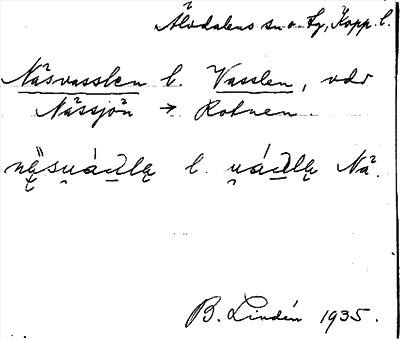 Älvdalens sn o. tg, Kopp. l.
Näsvasslen l. Vasslen, vdr
Nässjön → Rotnen.
l. Nä.
B. Lindén 1935.